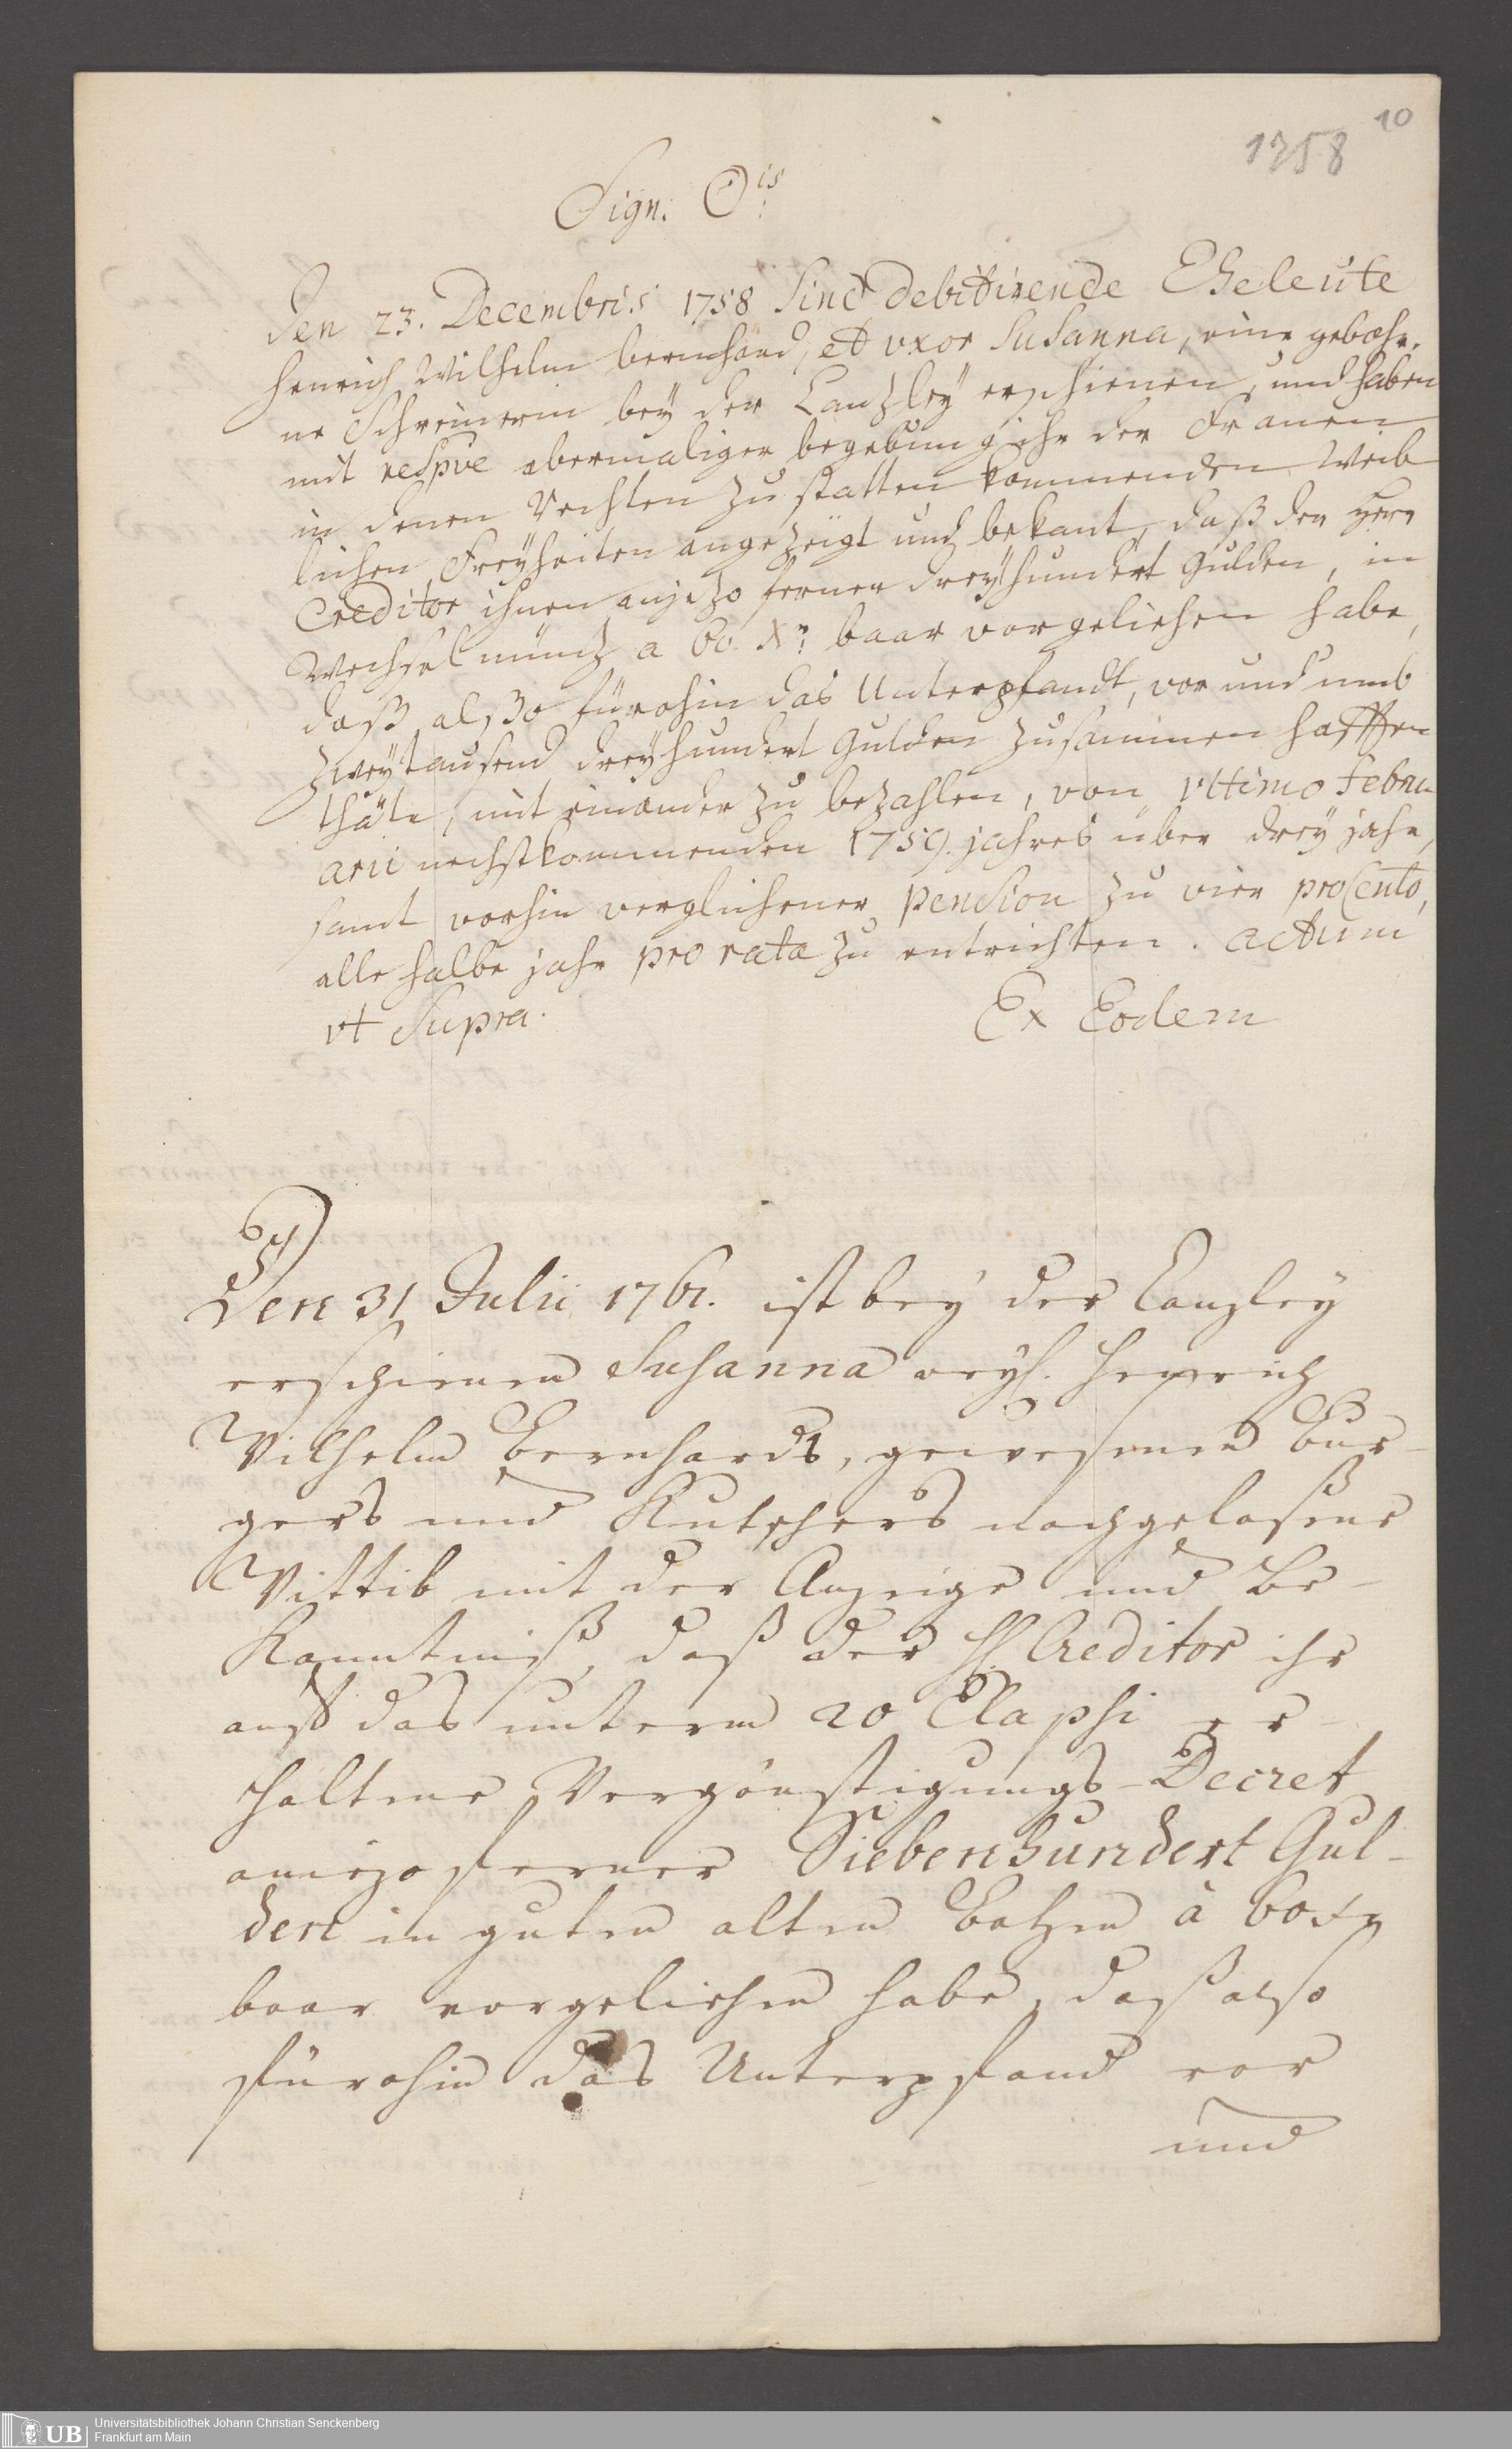 10
1758
Sign. ☉is
Den 23. Decembris 1758 Sind debitirende Eheleute
Henrich Wilhelm bernhard, et uxor Susanna, eine gebohr-
ne Schreinerin bey der Canzley erschienen, und haben
mit respve abermaliger begebung ihr der Frauen
in denen Rechten zu statten kommenden Weib
lichen Freyheiten angezeigt und bekant, daß der Herr
Creditor ihnen anjezo ferner dreyhundert Gulden, in
Wechselmüntz a 60 Xr. baar vorgeliehen habe,
daß alßo fürohin das Unterpfandt, vor und umb
zweytausend dreyhundert Gulden zusammen hafften
thäte, mit einander zu bezahlen, von ultimo Febru
arii nechstkommenden 1759. jahres über drey jahr,
samt vorhin verglichener pension zu vier proCento,
alle halbe jahr pro rata zu entrichten. actum
ut Supra.
Ex Eodem
Den 31 Julii 1761. ist bey der Canzley
erschienen Susanna weyl. Henrich
Wilhelm Bernhards, gewesenen Bur-
gers und Kutschers nachgelaßene
Wittib mit der Anzeige und Be-
kanntniß, daß der H. Creditor ihr
auf das unterm 20 Elapsi er-
haltene Vergönstigungs-Decret
aniezo ferner Siebenhundert Gul-
den in guten alten Batzen à 60 xr
baar vorgeliehen habe, daß also
fürohin das Unterpfand vor
und
UB
Universitätsbibliothek Johann Christian Senckenberg
Frankfurt am Main